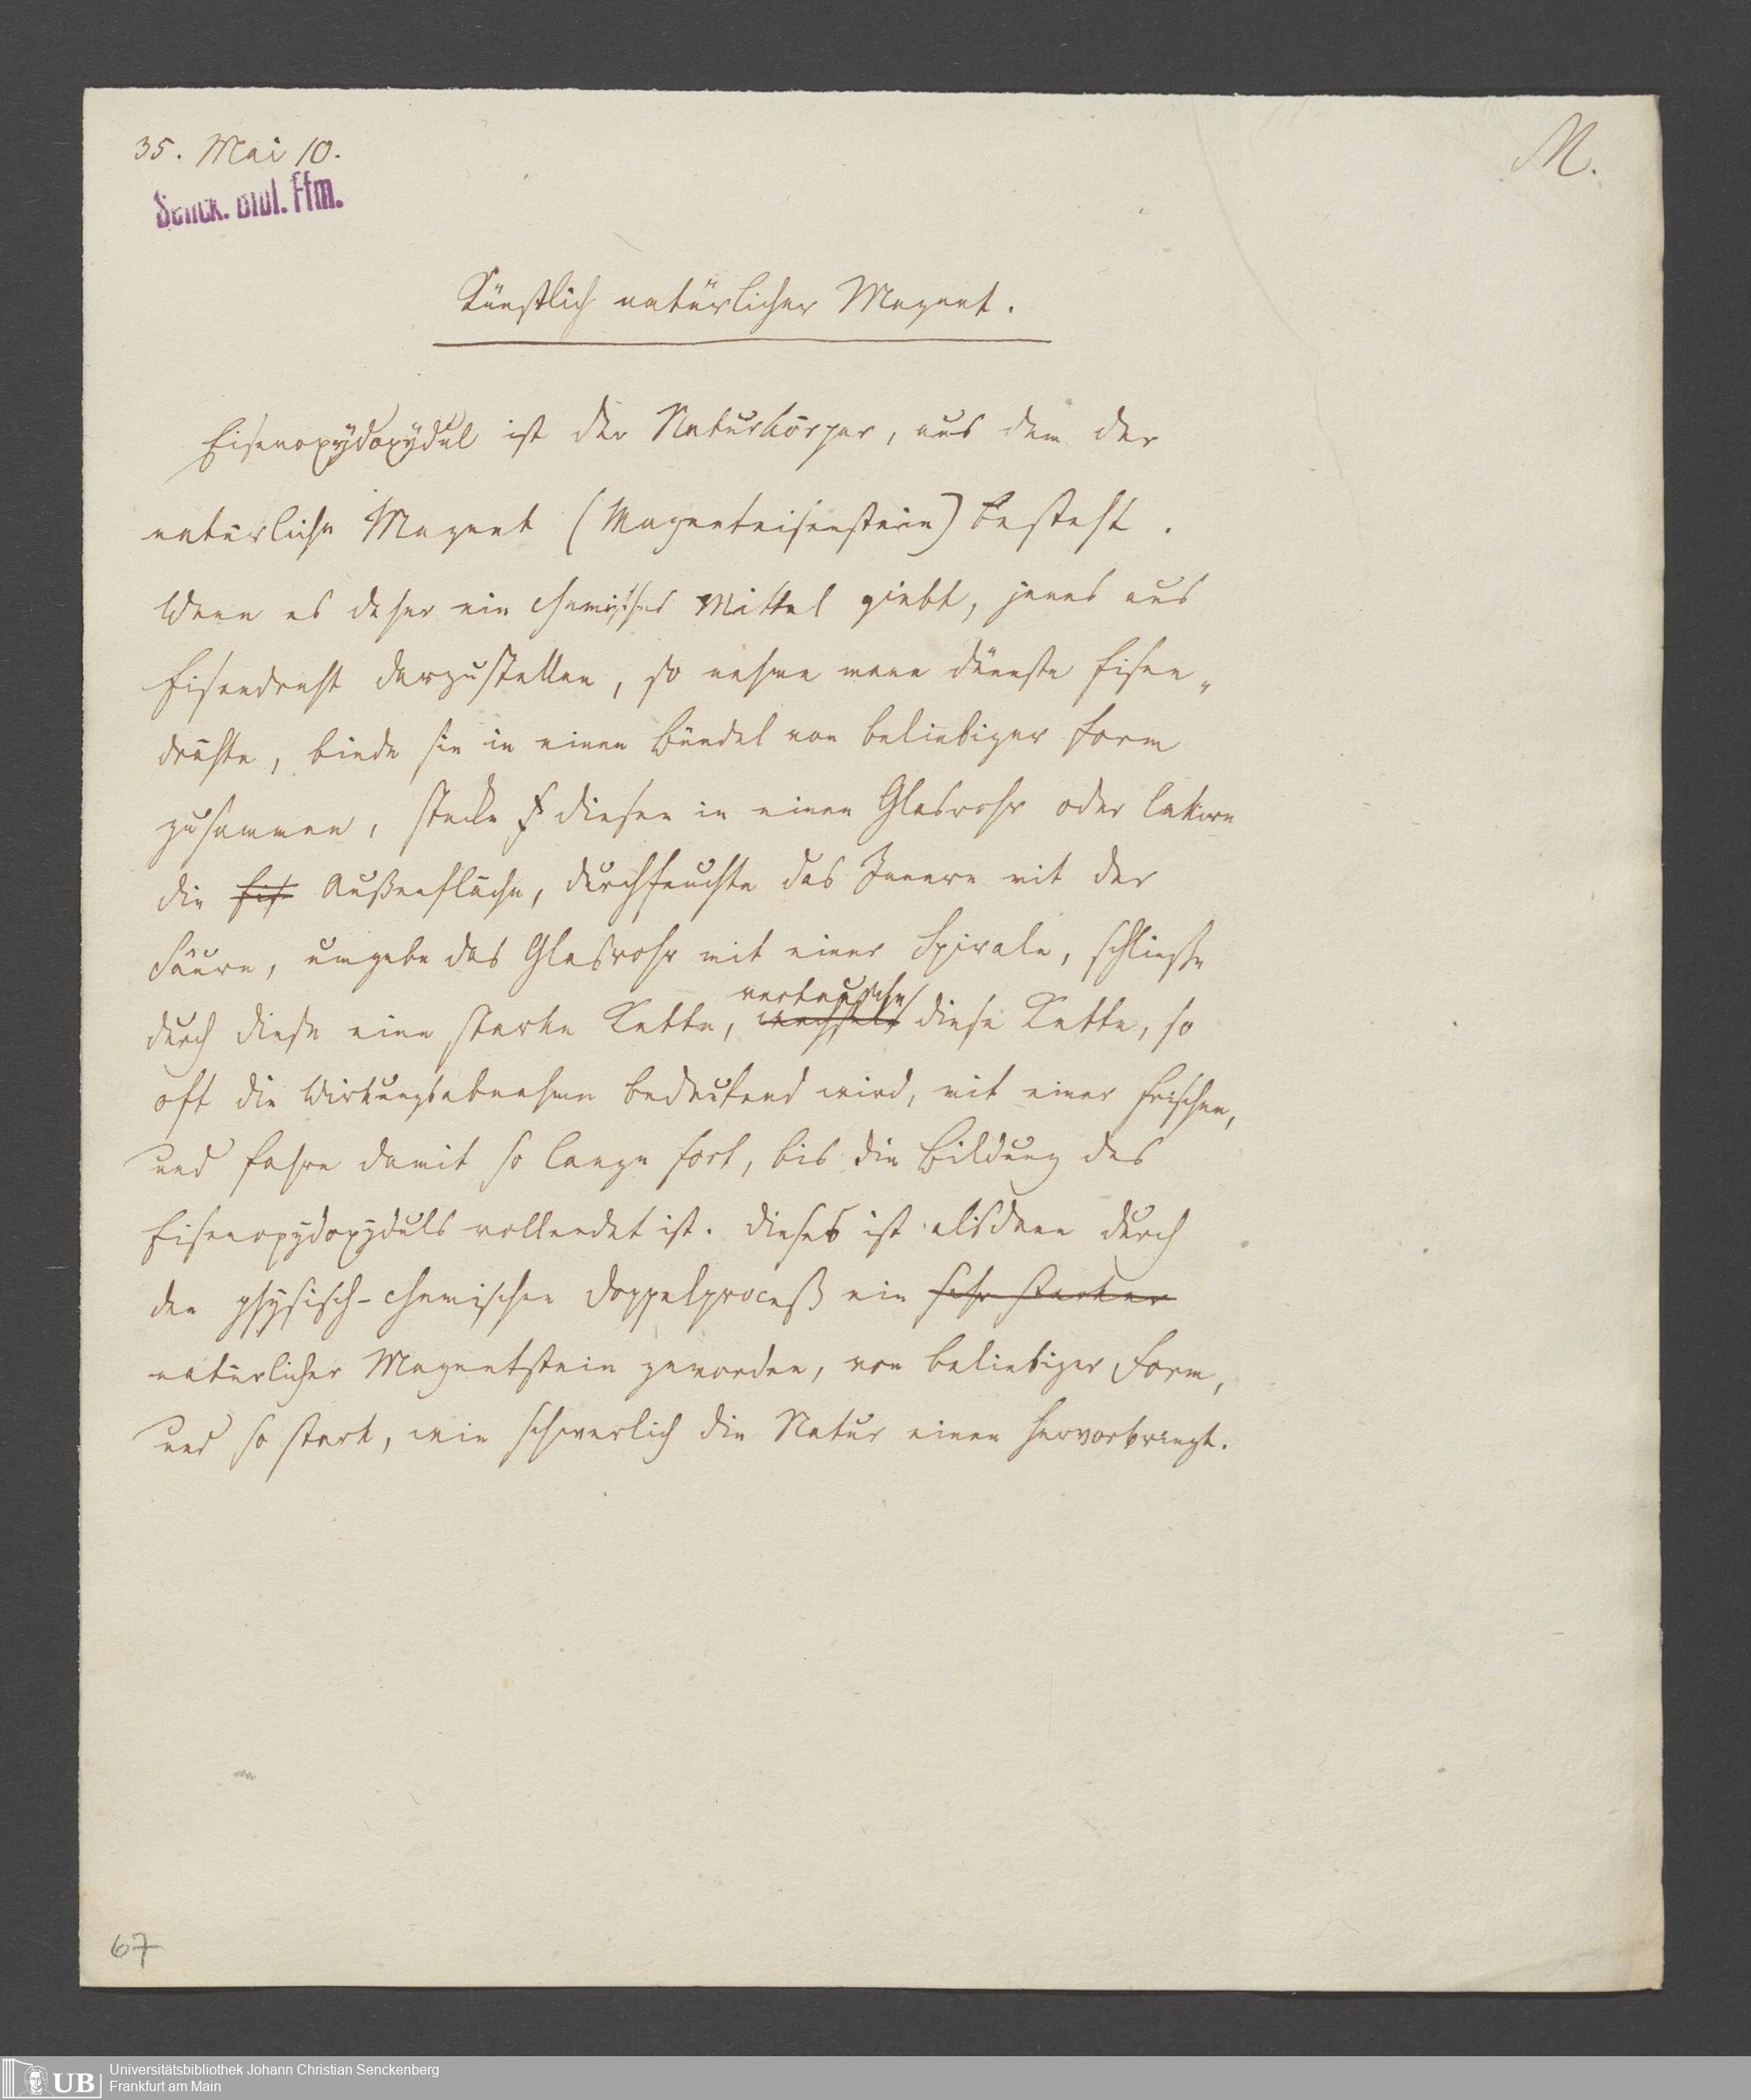 35. Mai 10.
M.
Senck. Bibl. Ffm.
Künstlich natürlicher Magnet.
Eisenoxÿdoxÿdul ist der Naturkörper, aus dem der
natürliche Magnet (Magneteisenstein) besteht.
Wenn es daher ein chemisches Mittel giebt, jenes aus
Eisendraht darzustellen, so nehme man dünnste Eisen„
drähte, binde sie in einen Bündel von beliebiger Form
zusammen, stecke diesen in einen Glasrohr oder lakire
die Eis Außenfläche, durchfeuchte das Innere mit der
Säure, umgebe das Glasrohr mit einer Spirale, schließe
vertausche
durch diese eine starke Kette, wechsele diese Kette, so
oft die Wirkungsabnahme bedeutend wird, mit einer frischen,
und fahre damit so lange fort, bis die Bildung des
Eisenoxÿdoxÿduls vollendet ist. Dieses ist alsdann durch
den physisch-chemischen Doppelproceß ein sehr starker
natürlicher Magnetstein geworden, von beliebiger Form,
und so stark, wie schwerlich die Natur einen hervorbringt.
67
UB
Universitätsbibliothek Johann Christian Senckenberg
Frankfurt am Main